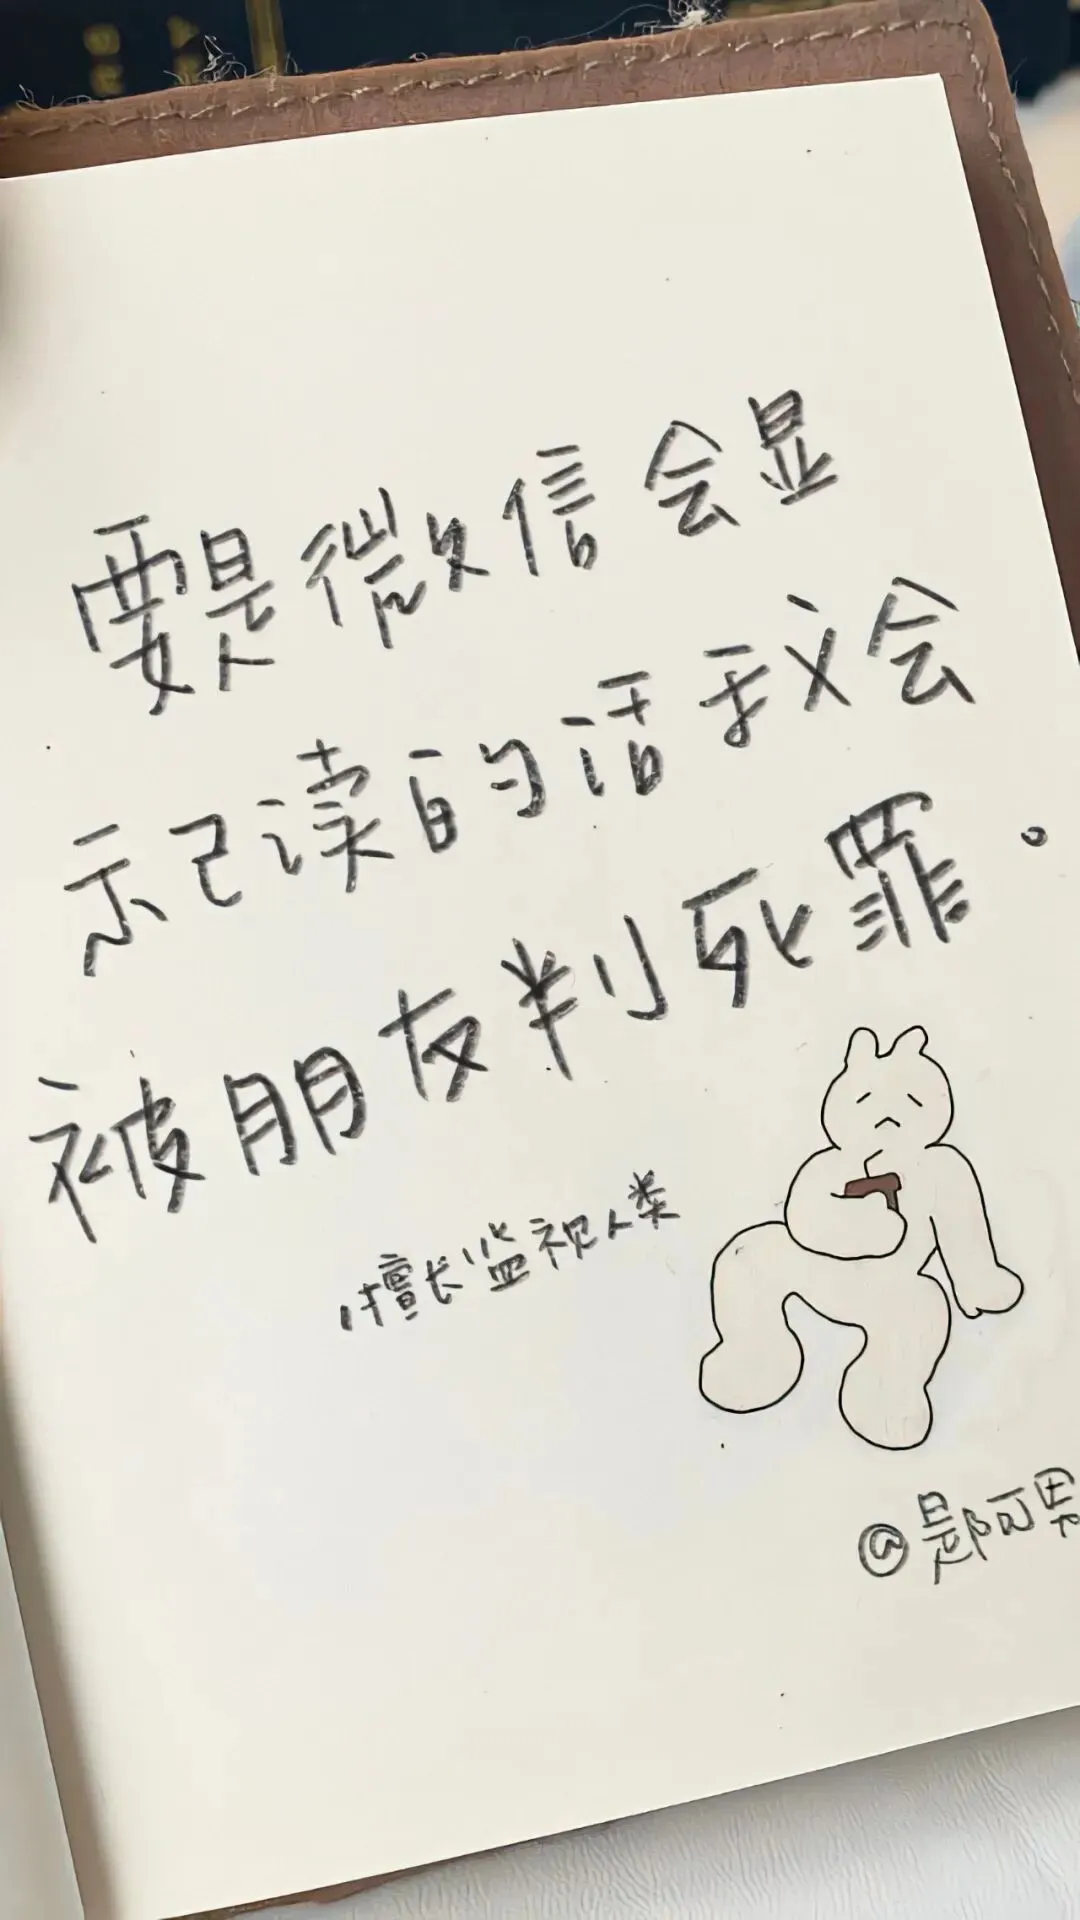 要是微信会显
示已读的话我会
被朋友判死罪。
擅长监视人类
@是阿男